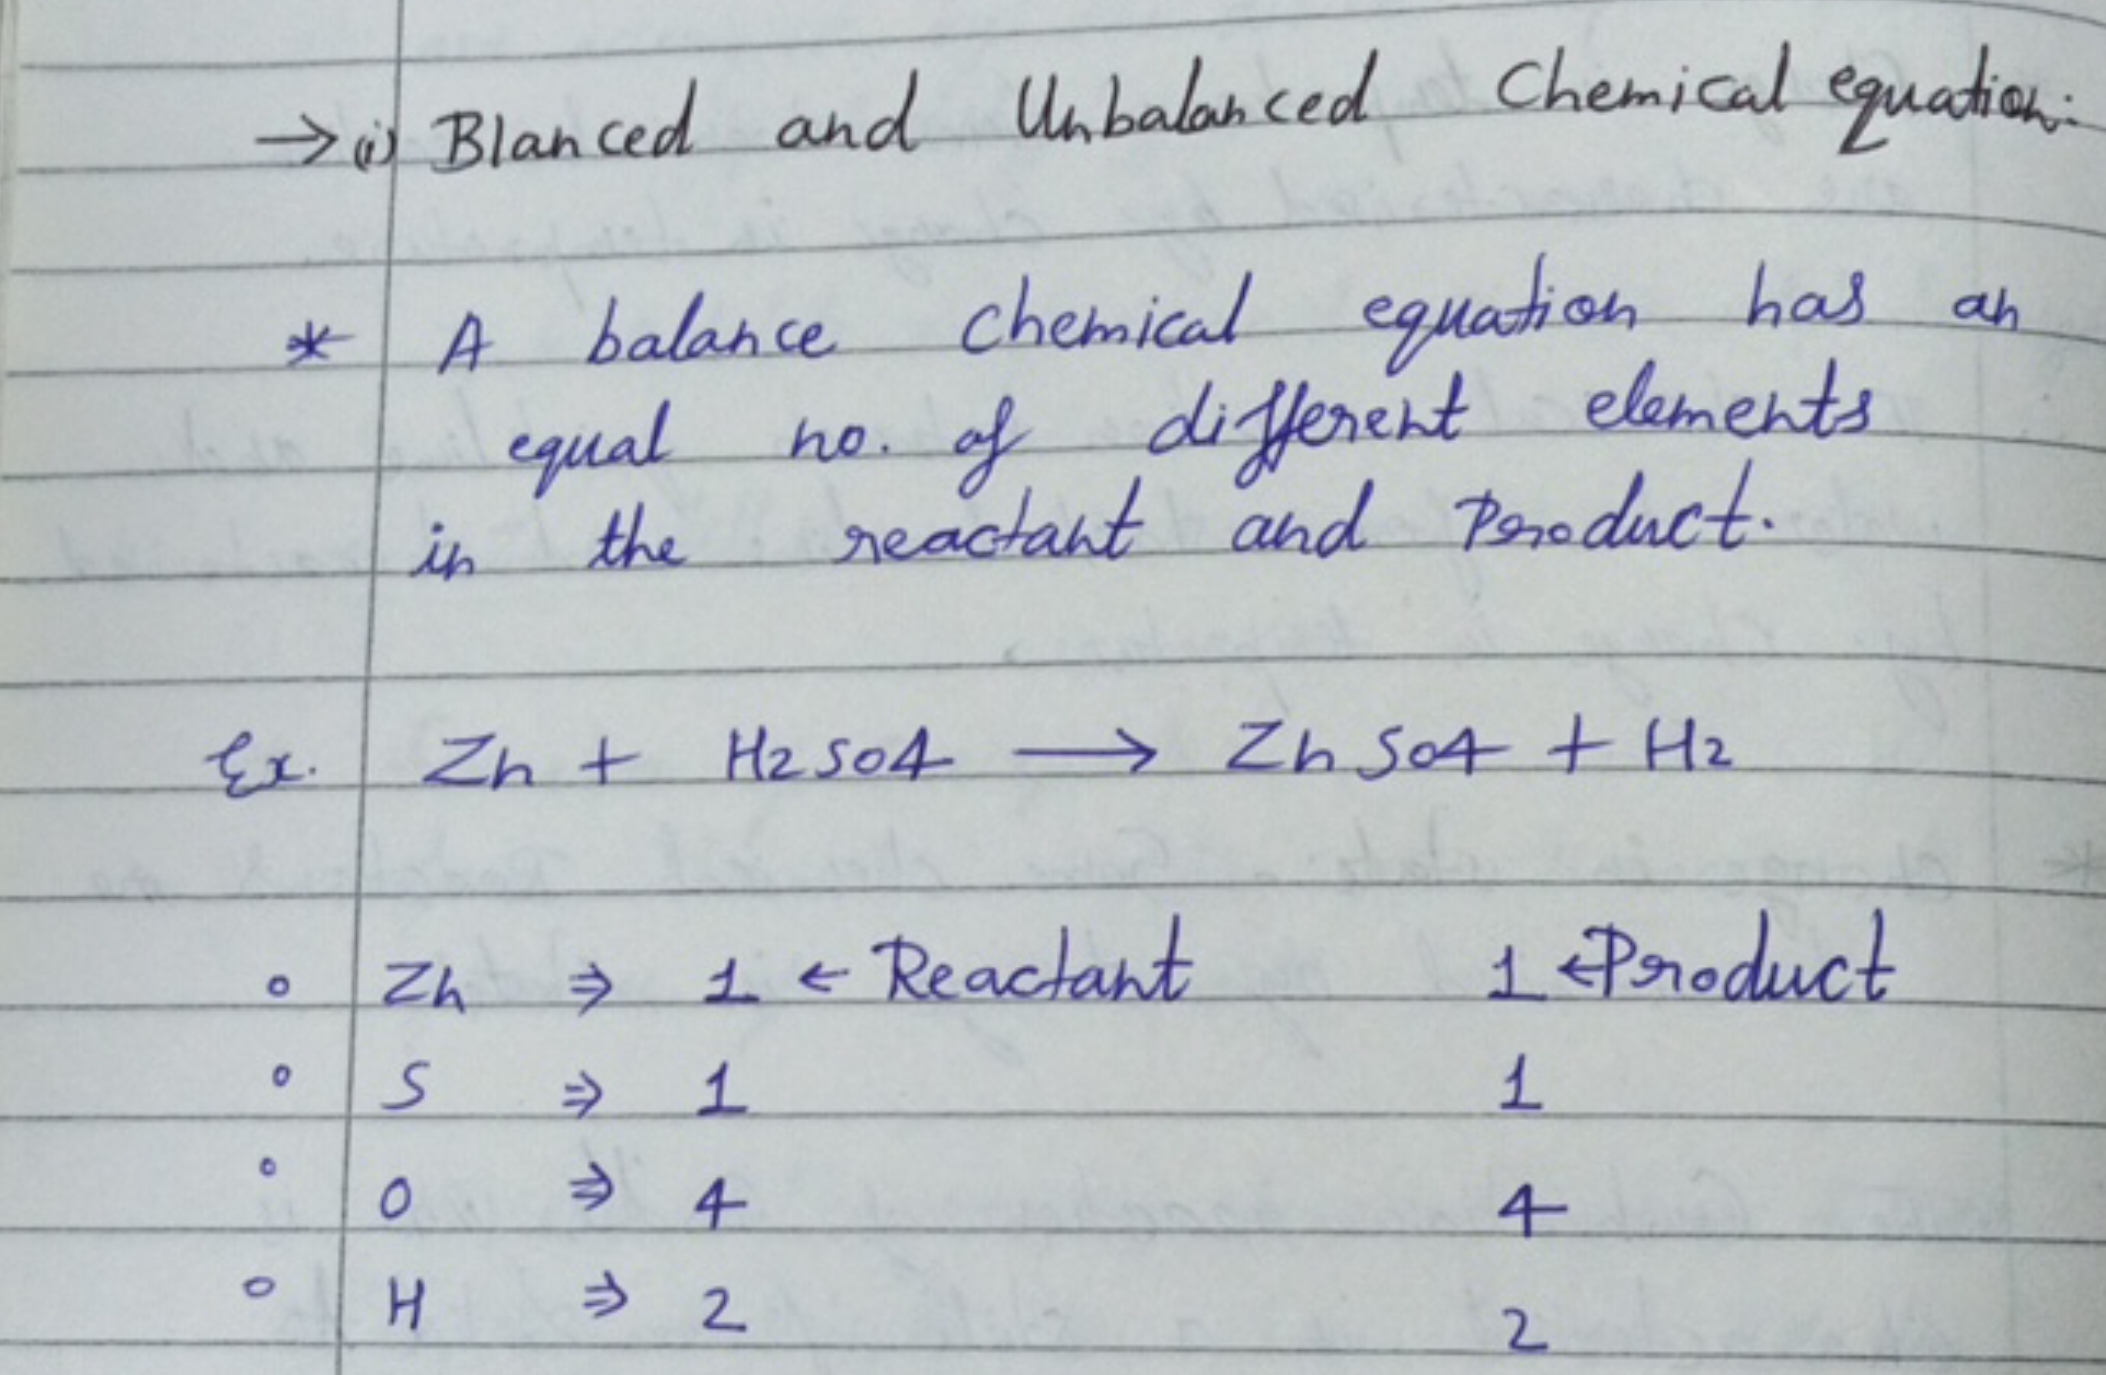 →(i) Blanced and Unbalanced Chemical equation:
* A balance chemical equation has an
equal no. of different elements
in the reactant and Product.
Ex. Zn + H2SO4 → ZnSO4 + H2
∘ Zn ⇒ 1 ← Reactant 1 ← Product
∘ S ⇒ 1 1
∘ O ⇒ 4 4
∘ H ⇒ 2 2